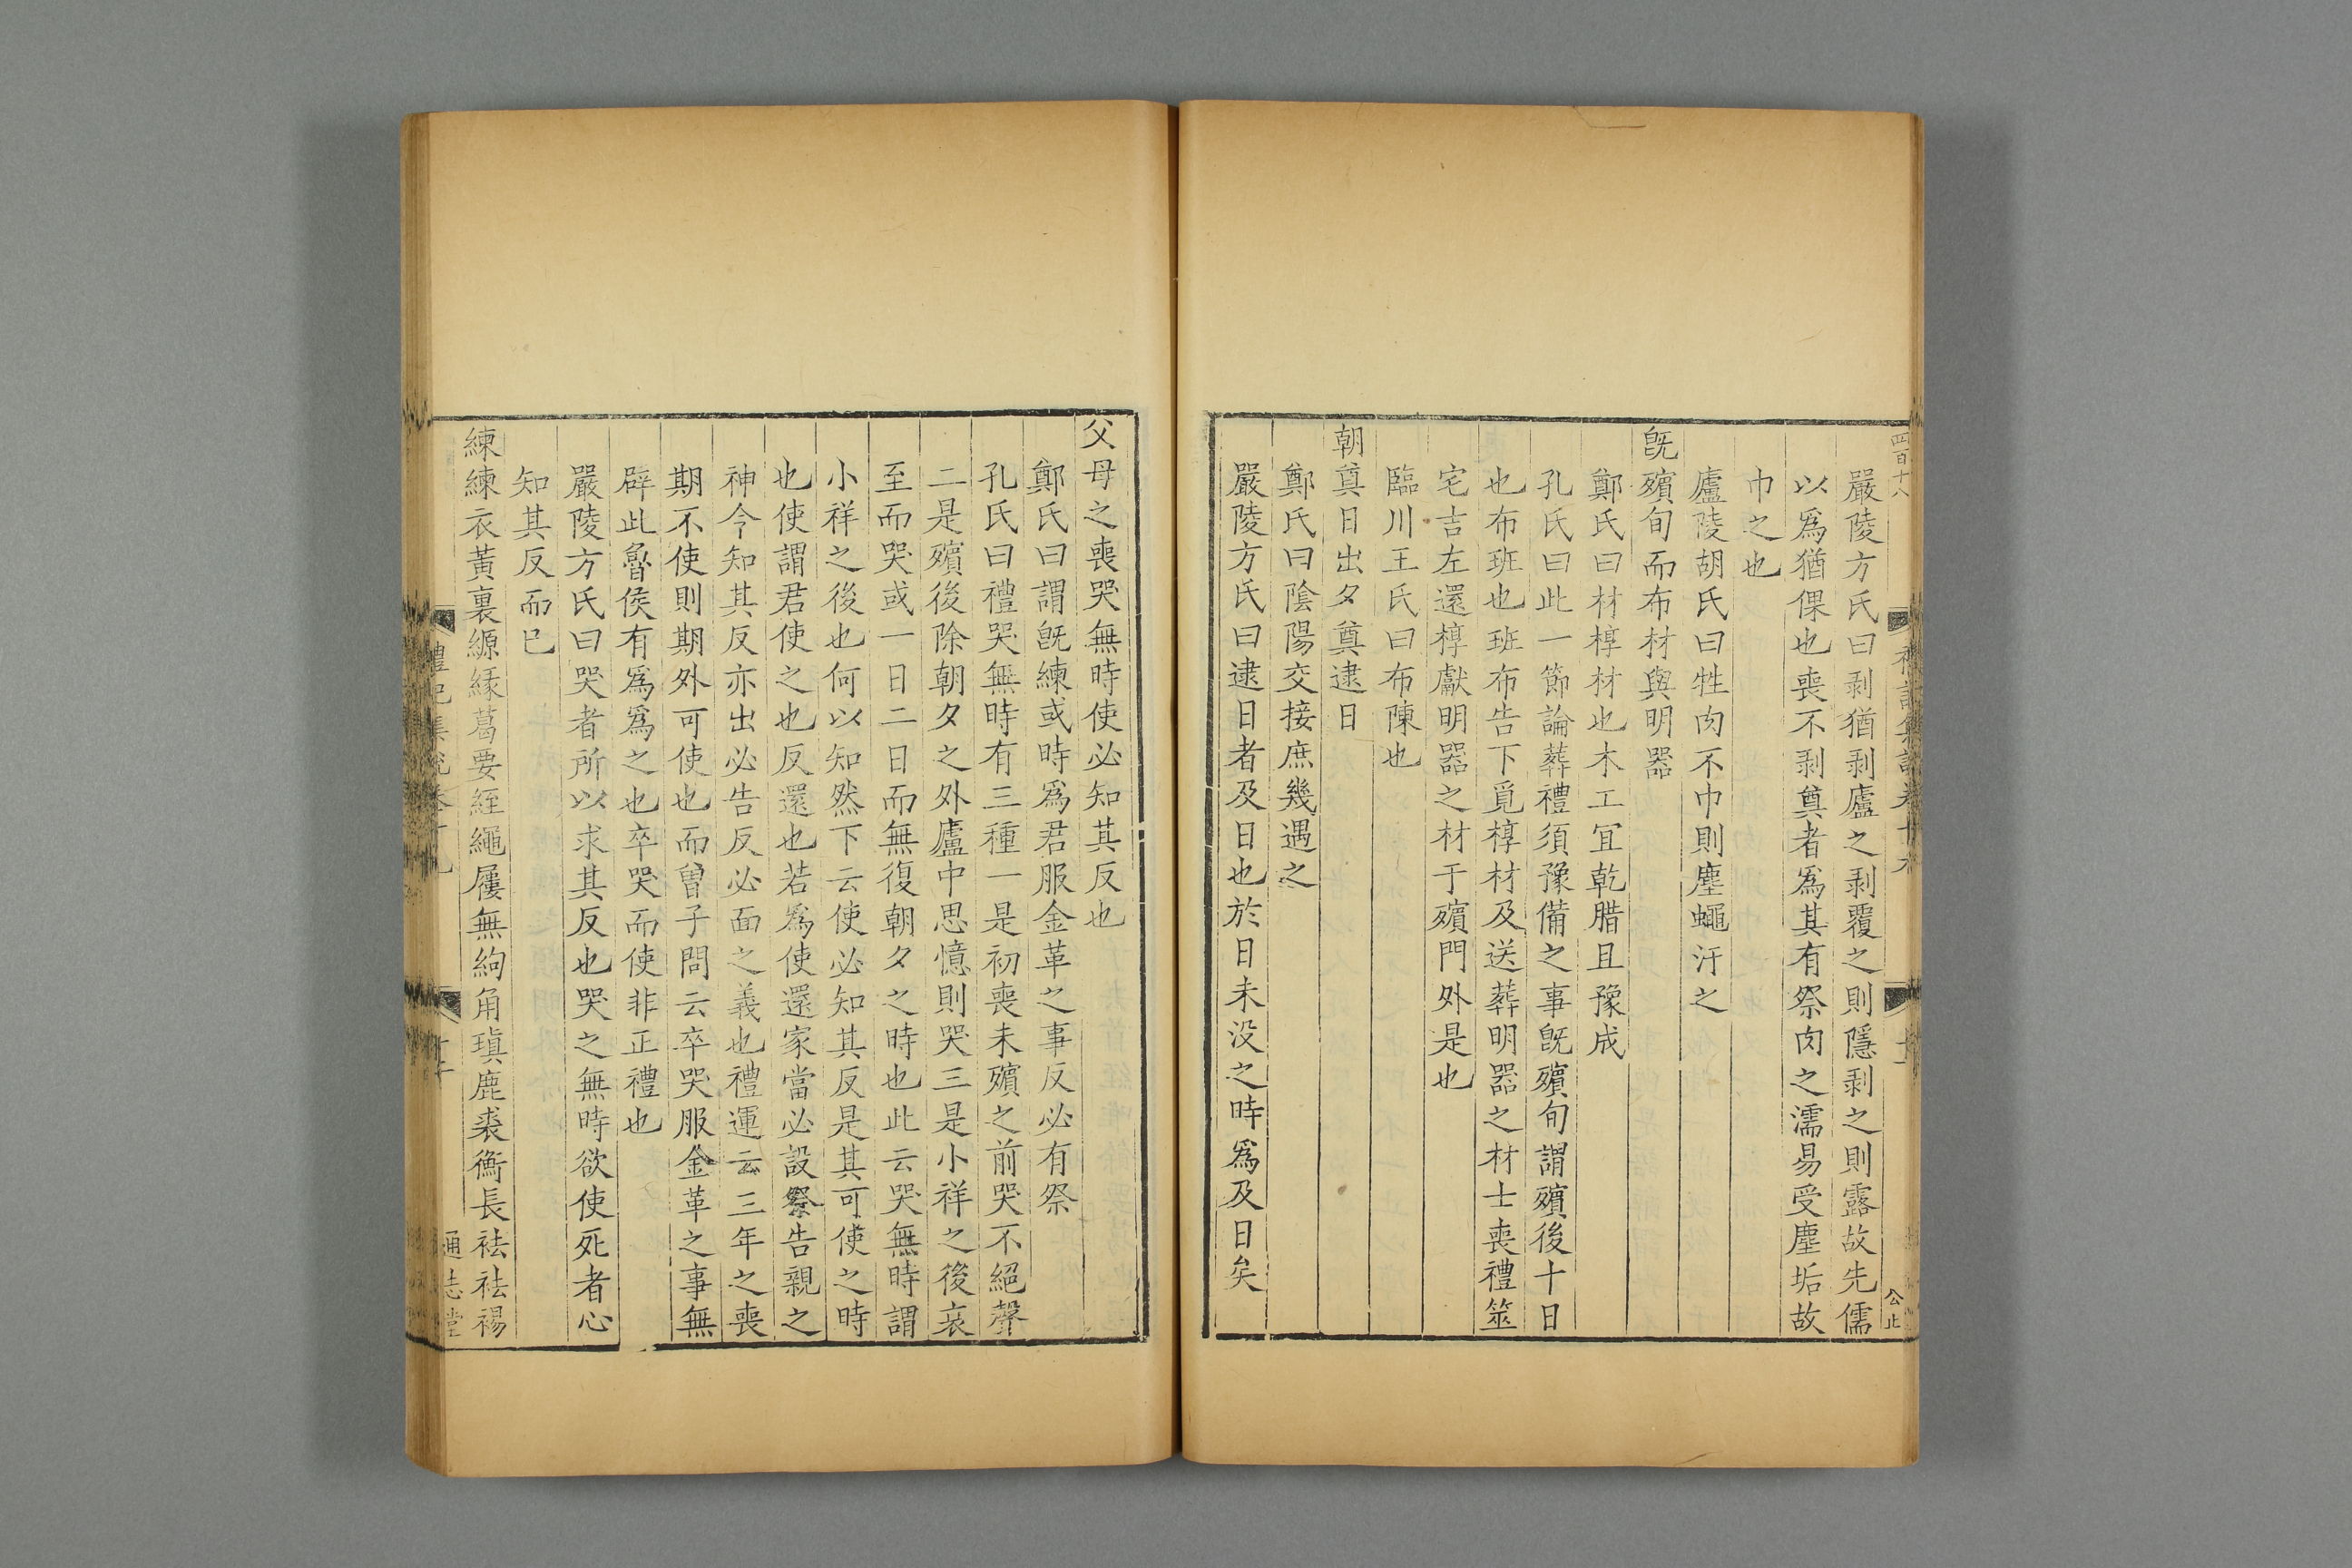 四百十八
嚴陵方氏曰剥猶剥廬之剥覆之則隱剥之則露故先儒
以爲猶倮也喪不剥奠者爲其有祭肉之濡易受塵垢故
巾之也
廬陵胡氏曰牲肉不巾則塵蠅汙之
旣殯旬而布材與明器
鄭氏曰材椁材也木工宜乾腊且豫成
孔氏曰此一節論葬禮須豫備之事旣殯旬謂殯後十日
也布班也班布告下覓椁材及送葬明器之材士喪禮筮
宅吉左還椁獻明器之材于殯門外是也
臨川王氏曰布陳也
朝奠日出夕奠逮日
鄭氏曰陰陽交接庶幾遇之
嚴陵方氏曰逮日者及日也於日未没之時爲及日矣
公止
父母之喪哭無時使必知其反也
鄭氏曰謂旣練或時爲君服金革之事反必有祭
孔氏曰禮哭無時有三種一是初喪未殯之前哭不絕聲
二是殯後除朝夕之外廬中思憶則哭三是小祥之後哀
至而哭或一日二日而無復朝夕之時也此云哭無時謂
小祥之後也何以知然下云使必知其反是其可使之時
也使謂君使之也反還也若爲使還家當必設祭告親之
神今知其反亦出必告反必面之義也禮運云三年之喪
期不使則期外可使也而曾子問云卒哭服金革之事無
辟此魯侯有爲爲之也卒哭而使非正禮也
嚴陵方氏曰哭者所以求其反也哭之無時欲使死者心
知其反而已
練練衣黃裏縓緣葛要絰繩屨無絇角瑱鹿裘衡長袪袪裼
禮記集說卷十九
通志堂